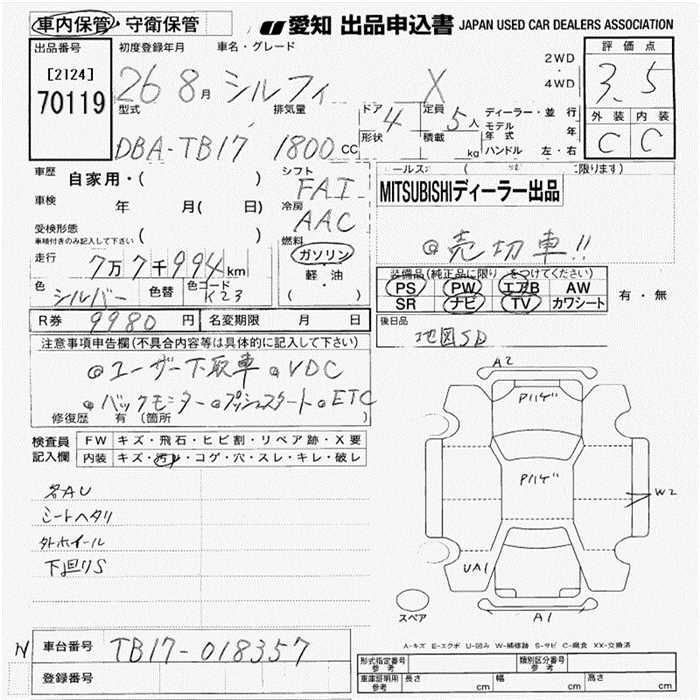 車内保管・守衛保管 愛知 出品申込書 JAPAN USED CAR DEALERS ASSOCIATION
出品番号 初度登録年月 車名・グレード 2WD 評価点
[2124] 26 8月 シルフィ X ・ 3.5
70119 4WD
型式 排気量 ドア 4 定員 5人 ディーラー・並行 外装 内装
DBA-TB17 1800cc 形状 積載 kg モデル年式 年 C C
ハンドル 左・右
車歴 自家用・( ) シフト FAI
車検 年 月( 日) 冷房 AAC MITSUBISHIディーラー出品
受検形態 ( )
車検付きのみ記入して下さい 燃料 ◎売切車!!
走行 7万7千994km ガソリン
軽・油 装備品(純正品に限り をつけてください)
色 シルバー 色替 色コード K23 ・( ) PS PW エアB AW 有・無
SR ナビ TV カワシート
R券 9980円 名変期限 月 日 後日品
注意事項申告欄(不具合内容等は具体的に記入して下さい) 地図SD
◎ユーザー下取車 ◎VDC
◎バックモニター ◎プッシュスタート ◎ETC
修復歴 有 (箇所 )
検査員 FW キズ・飛石・ヒビ割・リペア跡・X要
記入欄 内装 キズ・汚レ・コゲ・穴・スレ・キレ・破レ
A2
Pハゲ
各AU
Pハゲ
シートヘタリ W2
外ホイール
下廻りS UA1
スペア A1
A-キズ E-エクボ U-凹み W-補修跡 S-サビ C-腐食 XX-交換済
N 車台番号 TB17-018357
登録番号
形式指定番号 参考 類別区分番号 参考
車庫証明用 参考 長さ cm 幅 cm 高さ cm